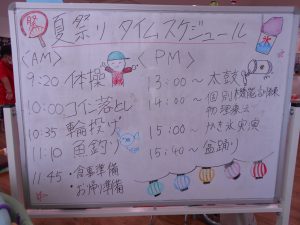 祭
夏祭り タイムスケジュール
<AM>
9:20 体操
10:00 コイン落とし
10:35 輪投げ
11:10 魚釣り
11:45 ・食事準備
・お帰り準備
<PM>
13:00〜 太鼓
14:00〜 個別機能訓練
物理療法
15:00〜 かき氷実演
15:40〜 盆踊り